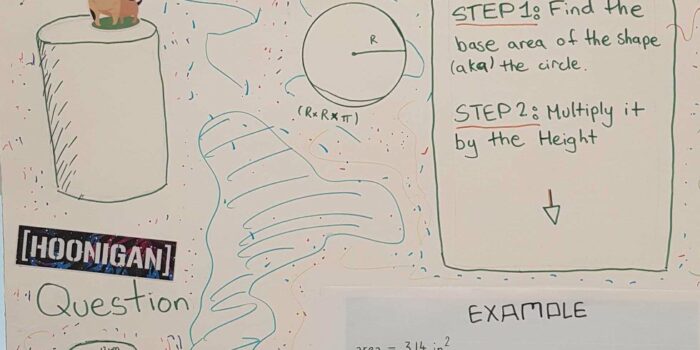 R
(R × R × π)
STEP 1: Find the
base area of the shape
(aka) the circle.
STEP 2: Multiply it
by the Height
[HOONIGAN]
Question
EXAMPLE
area = 314 in²